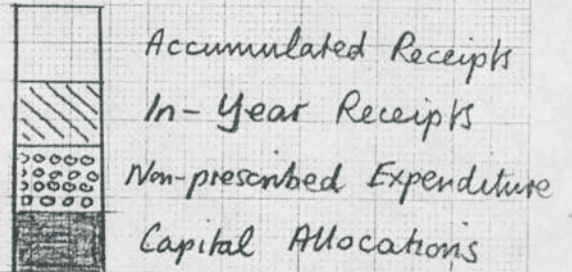 Accumulated Receipts
In-Year Receipts
Non-prescribed Expenditure
Capital Allocations